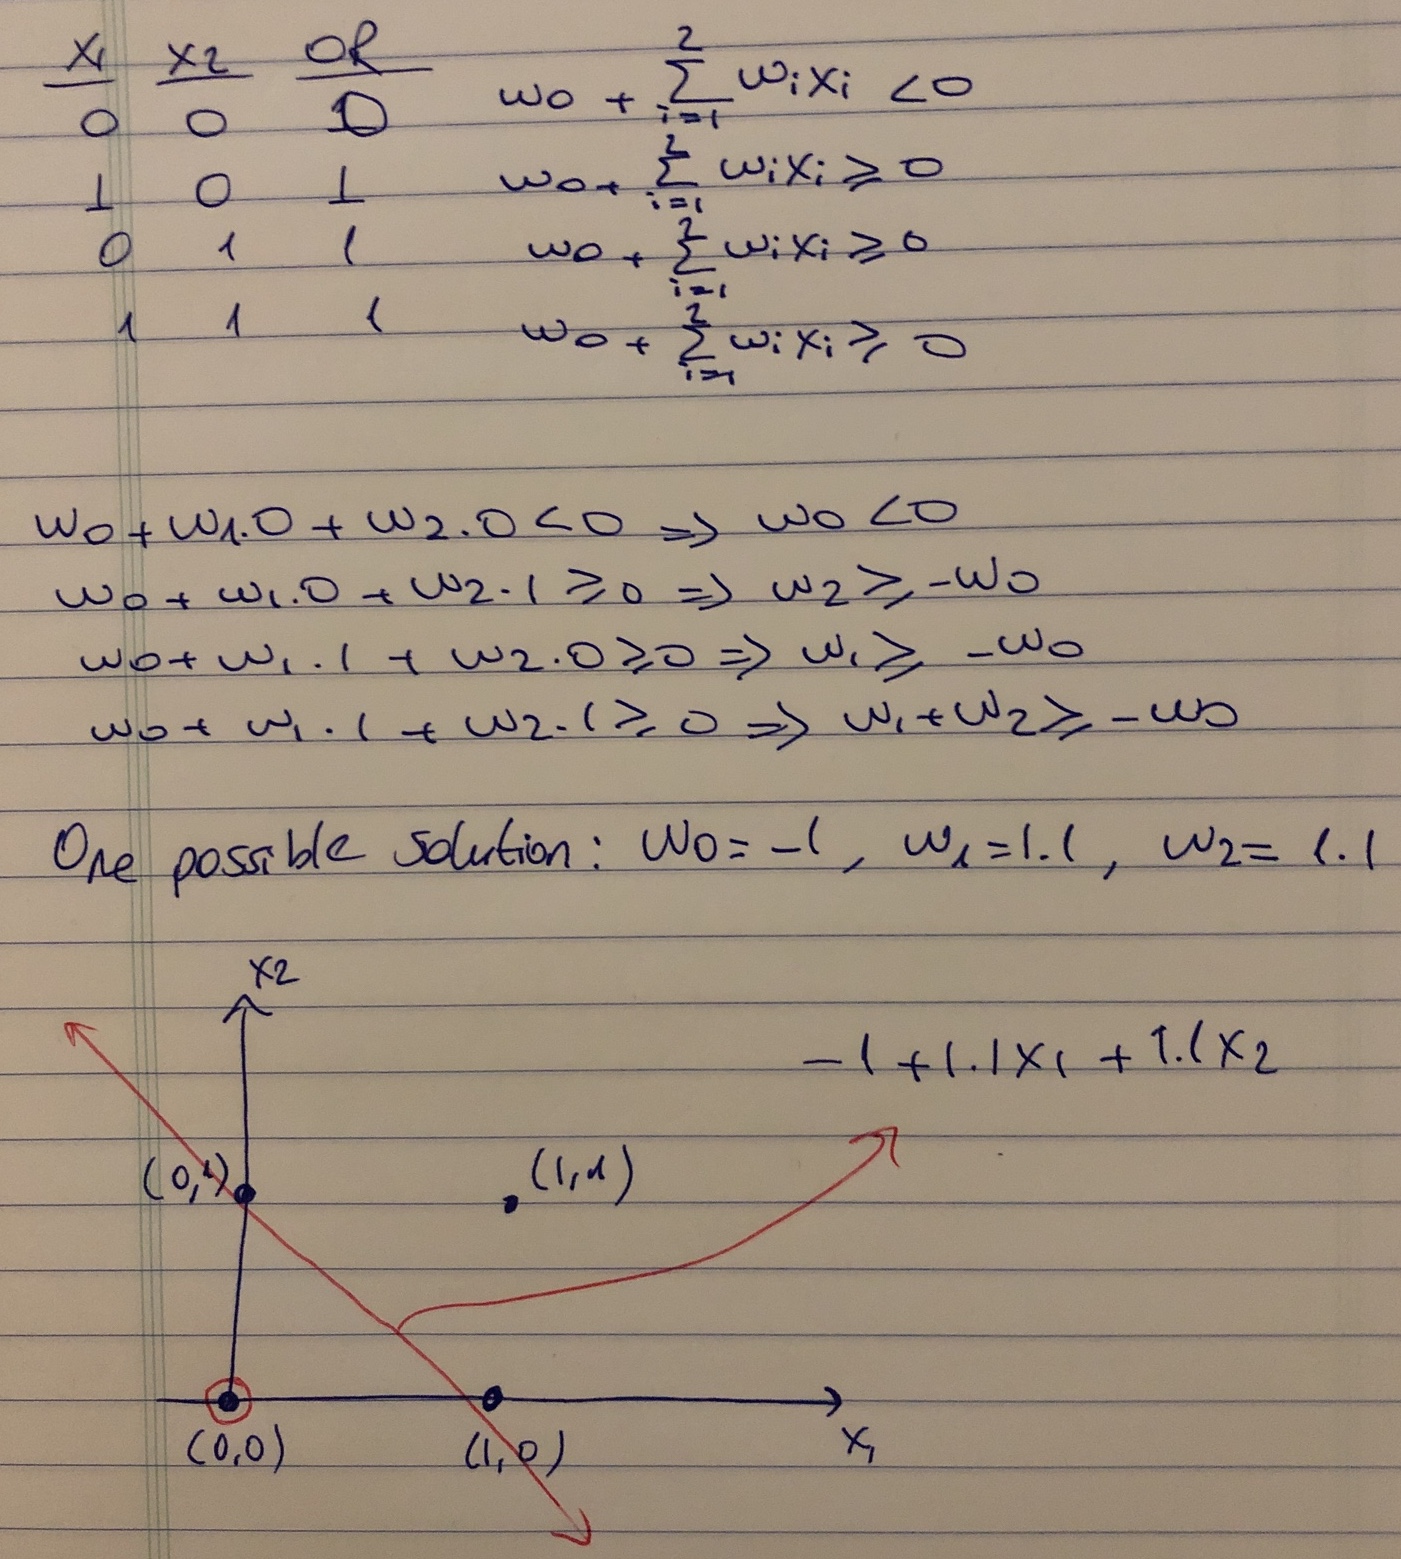 x1 x2 OR
0 0 0 w0 + 2∑i=1 wixi <0
1 0 1 w0+ 2∑i=1 wixi ≥ 0
0 1 1 w0 + 2∑i=1 wixi ≥ 0
1 1 1 w0 + 2∑i=1 wixi ≥ 0
w0 + w1.0 + w2.0 < 0 => w0 < 0
w0 + w1.0 + w2.1 ≥ 0 => w2 ≥ -w0
w0 + w1.1 + w2.0 ≥ 0 => w1 ≥ -w0
w0 + w1.1 + w2.1 ≥ 0 => w1+w2 ≥ -w0
One possible solution: w0 = -1, w1 = 1.1, w2 = 1.1
x2
-1 + 1.1x1 + 1.1x2
(0,1) (1,1)
(0,0) (1,0) x1